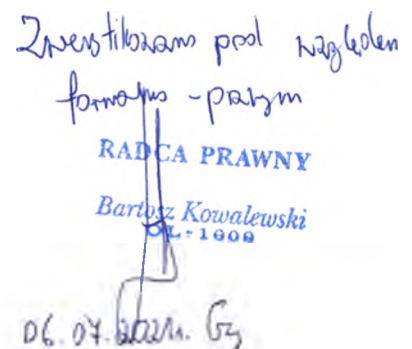 Zweryfikowano pod względem
formalno-prawnym
RADCA PRAWNY
Bartosz Kowalewski
OL-1009
06.07.2021r.